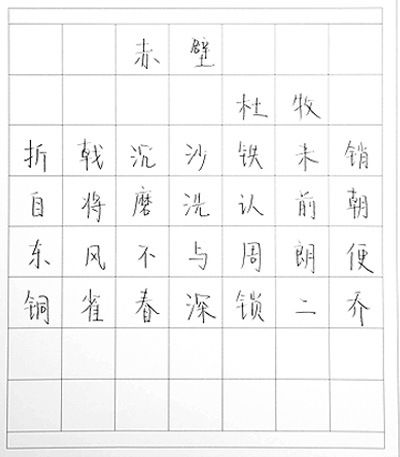 赤壁
杜牧
折戟沉沙铁未销
自将磨洗认前朝
东风不与周朗便
铜雀春深锁二乔